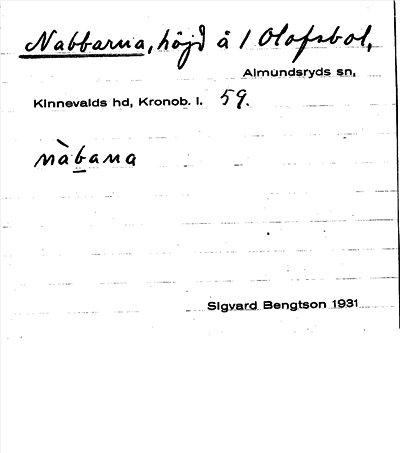 Nabbarna, höjd å 1 Olofsbol,
Almundsryds sn,
Kinnevalds hd, Kronob. l. 59.
nàbana
Sigvard Bengtson 1931